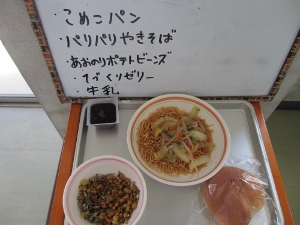 ・こめこパン
・パリパリやきそば
・あおのりポテトビーンズ
・てづくりゼリー
・牛乳